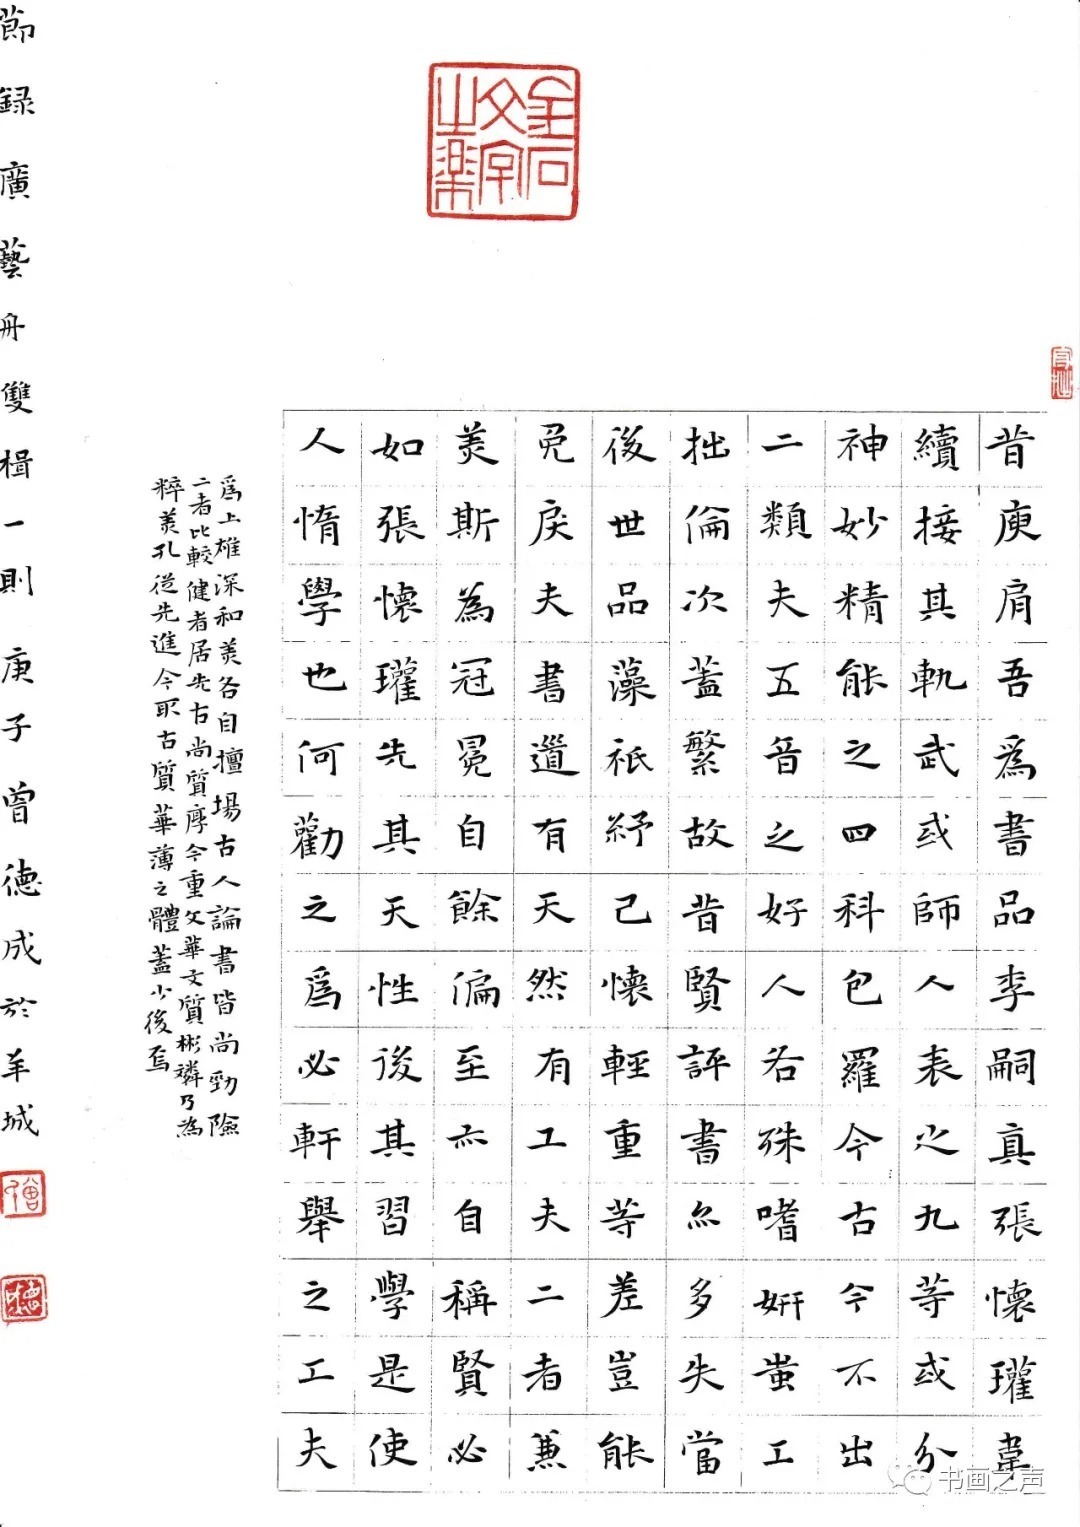 金石
文字
之樂
昔庾肩吾爲書品李嗣真張懷瓘韋
續接其軌武或師人表之九等或分
神妙精能之四科包羅今古今不出
二類夫五音之好人各殊嗜妍蚩工
拙倫次蓋繁故昔賢評書亦多失當
後世品藻祇紓己懷輕重等差豈能
免戾夫書道有天然有工夫二者兼
美斯為冠冕自餘偏至亦自稱賢必
如張懷瓘先其天性後其習學是使
人惰學也何勸之爲必軒舉之工夫
爲上雄深和美各自擅場古人論書皆尚勁險
二者比較健者居先古尚質厚今重文華文質彬璘乃為
粹美孔從先進今取古質華薄之體蓋少後焉
節録廣藝舟雙楫一則庚子曾德成於羊城
书画之声